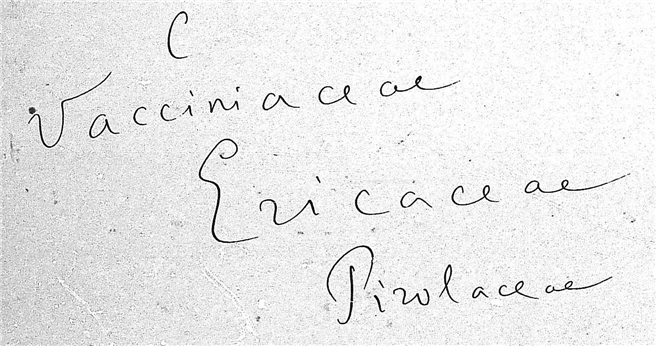 C
Vacciniaceae
Ericaceae
Pirolaceae